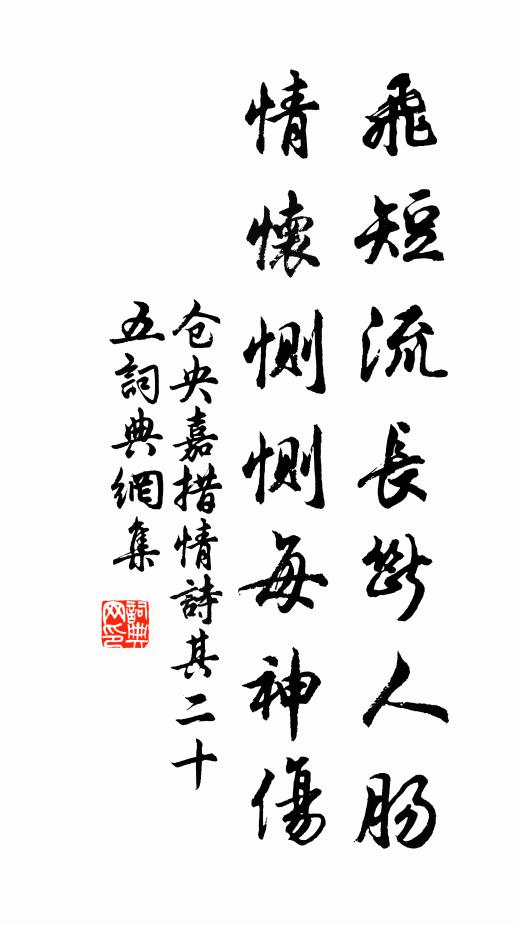 飛短流長斷人肠
情懷惻惻每神傷
仓央嘉措情詩其二十
五詞典網集
詞典網印